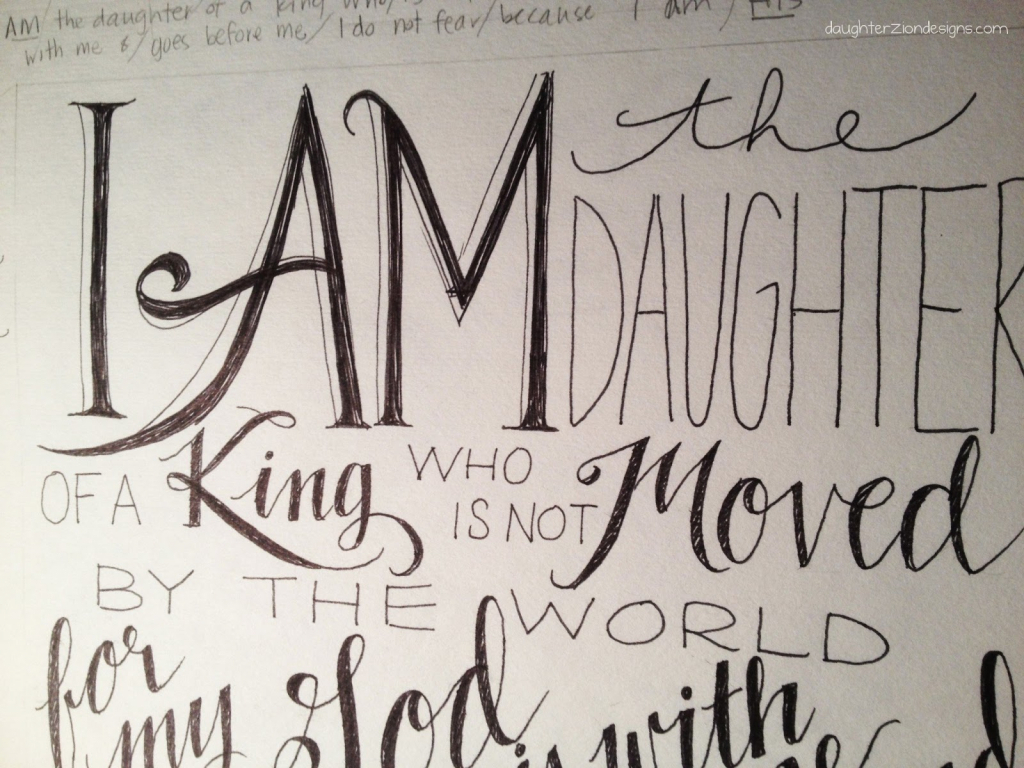 AM / the daughter / of a King who / is
with me & / goes before me, / I do not fear / because I am / HIS
daughterZiondesigns.com
I AM the
DAUGHTER
OF A King WHO
IS NOT Moved
BY THE WORLD
for
my God
is with